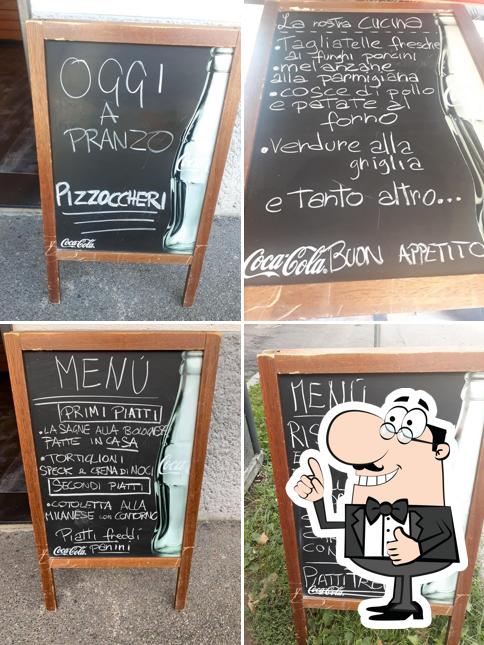 OGGI
A
PRANZO
PIZZOCCHERI
Coca-Cola
La nostra CUCINA
• Tagliatelle fresche
ai funghi porcini
• mel'anzane
alla parmigiana
• cosce di pollo
e patate al
forno
• vendure alla
griglia
e Tanto altro...
Coca-Cola BUON APPETITO
MENÚ
PRIMI PIATTI
• LASAGNE ALLA BOLOGNESE
FATTE IN CASA
• TORTIGLIONI
SPECK e CREMA DI NOCI
SECONDI PIATTI
• COTOLETTA ALLA
MILANESE con CONTORNO
Piatti freddi
Coca-Cola panini
Coca-Cola
MENÚ
RIS
CON
PIATTI FRE
Coca-Cola